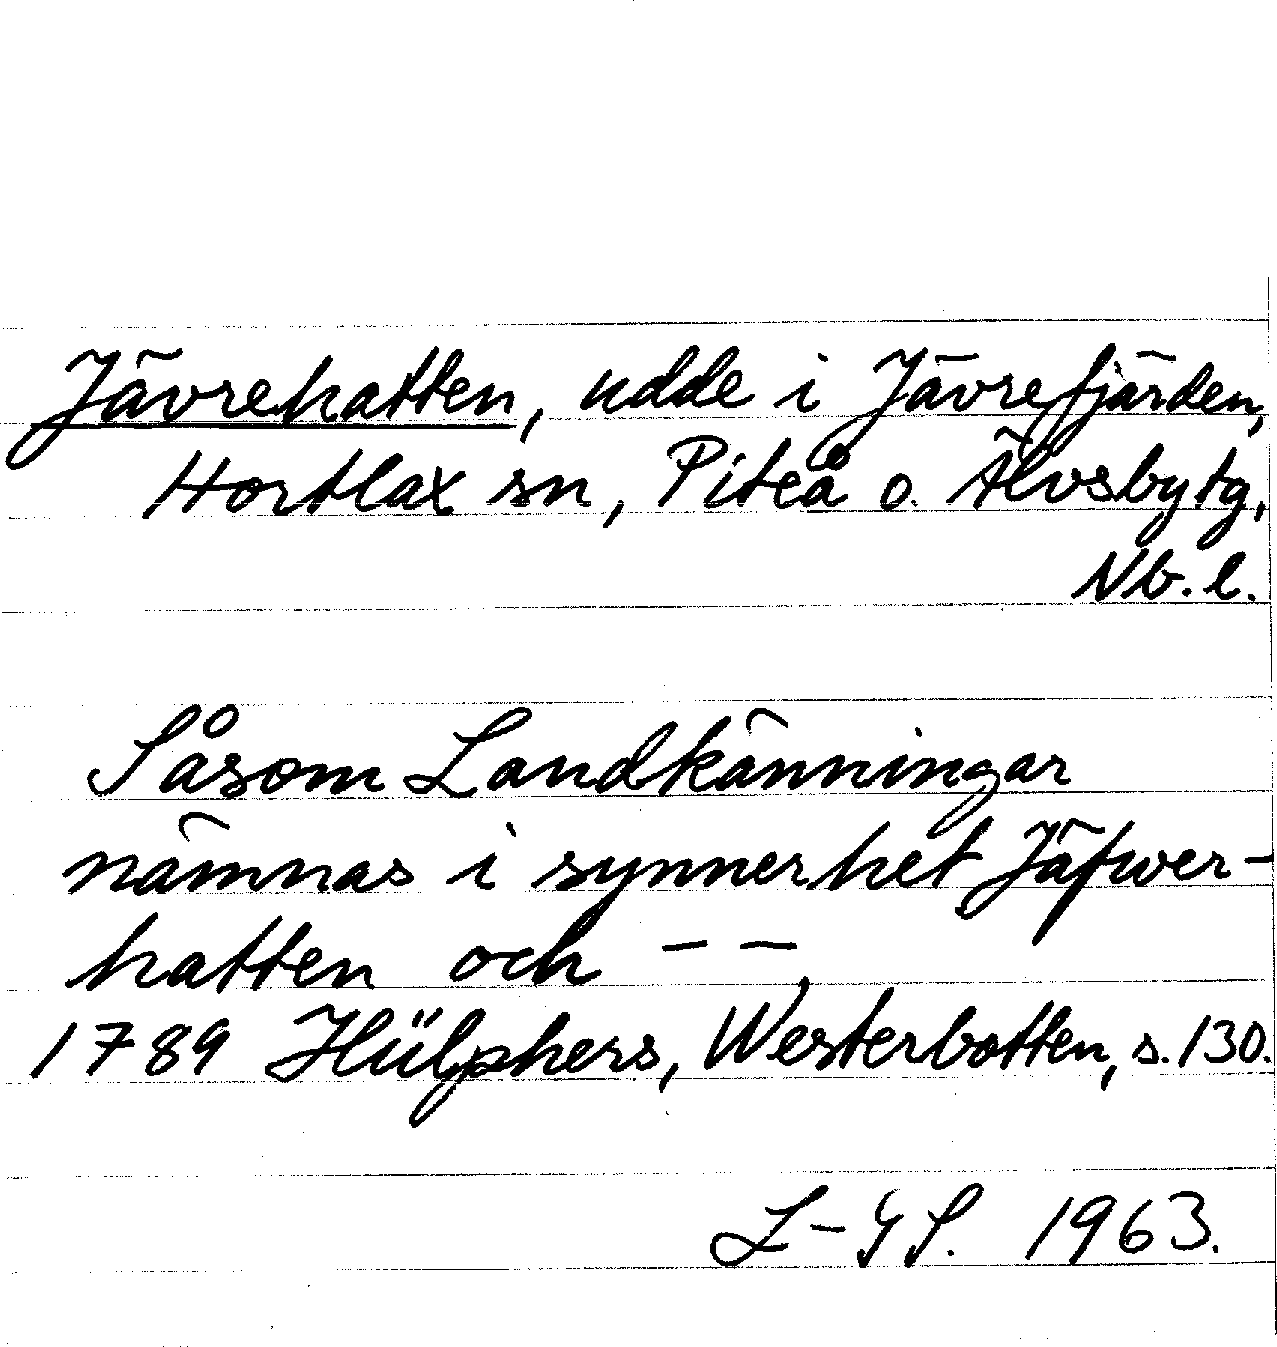 Jävrehatten, udde i Jävrefjärden,
Hortlax sn, Piteå o. Älvsby tg,
Nb. l.
Såsom Landkänningar
nämnas i synnerhet Jäfwer-
hatten och – –,
1789 Hülphers, Westerbotten, s. 130.
L-GS. 1963.